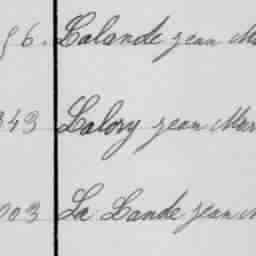 96. Lalande jean Ma
343 Lalory jean Mar
003 La Lande jean M